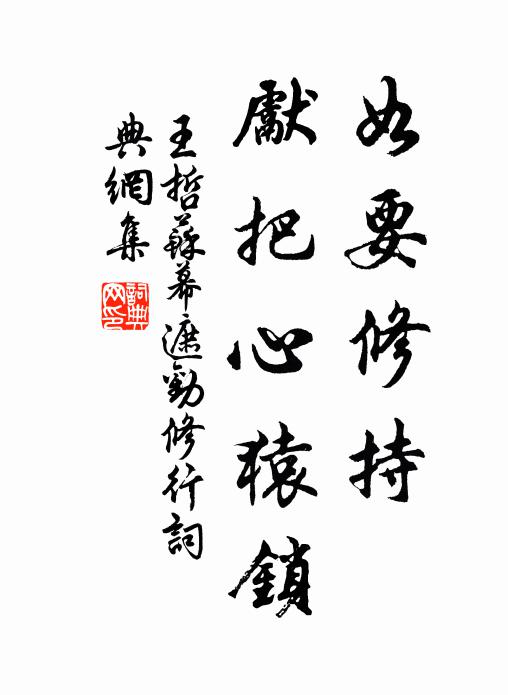 如要修持
獻把心猿鎖
王哲蘇幕遮勸修行詞
典網集
詞典網印